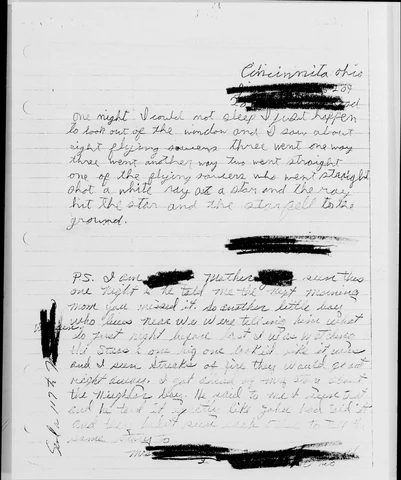 Cincinnita ohio
one night I could not sleep I just happen
to look out of the window and I saw about
eight flying saucers three went one way
three went another way two went straight
one of the flying saucers who went straight
shot a white ray at a star and the ray
hit the star and the star fell to the
ground.
PS. I am mother seen this
one night & he told me the next morning
mom you missed it. so another little boy
who lives near we were telling him what
so just night before last I was watching
the stars & one big one looked like it was
and I seen streaks of fire they would go out
right away. I got ahead of my son about
the neighbor boy. He said to me I seen that
and he told it just like John had told it
and they hadn't seen each other to tell the
same story to